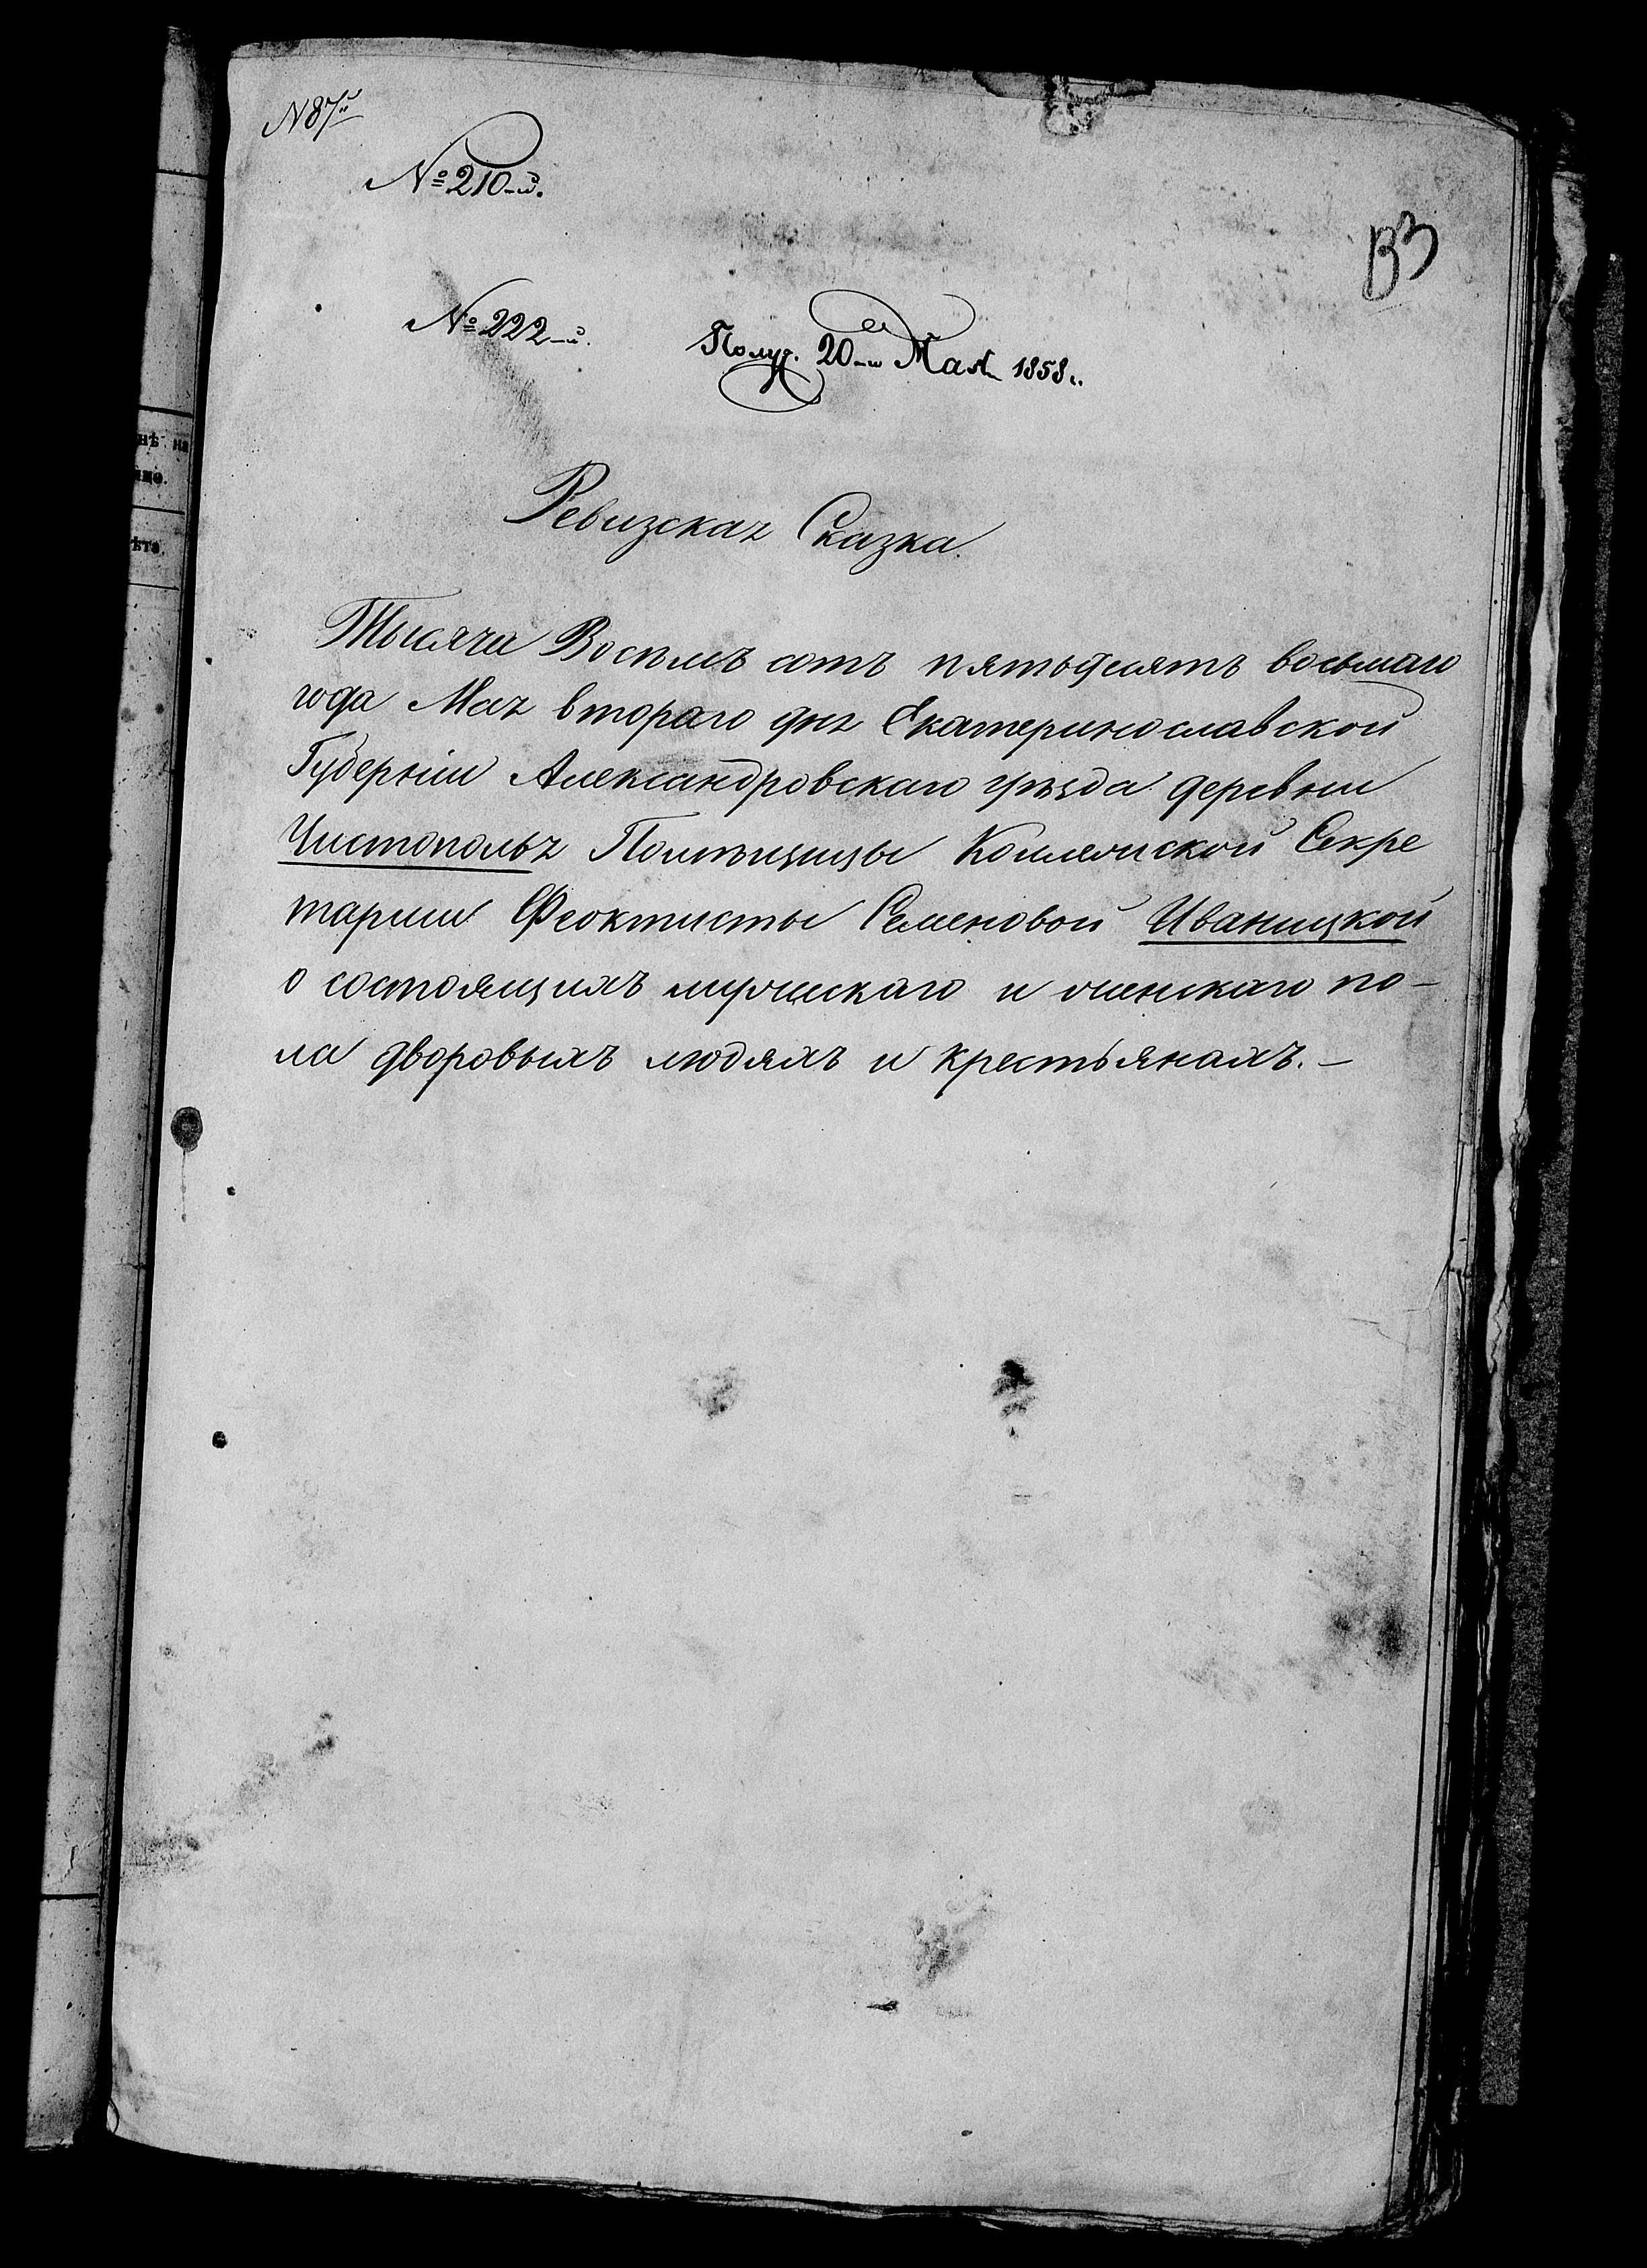 N 87й
№ 210-й.
133
№ 222-й.
Получ. 20-го Мая 1858 г.
Ревизская Сказка.
Тысяча Восемь сотъ пятьдесятъ восьмаго
года Мая втораго дня Екатеринославской
Губерніи Александровскаго уѣзда деревни
Чистополья Помѣщицы Коллежской Секре
тарши Феоктисты Семеновой Иваницкой
о состоящихъ мужескаго и женскаго по-
ла дворовыхъ людяхъ и крестьянахъ.-